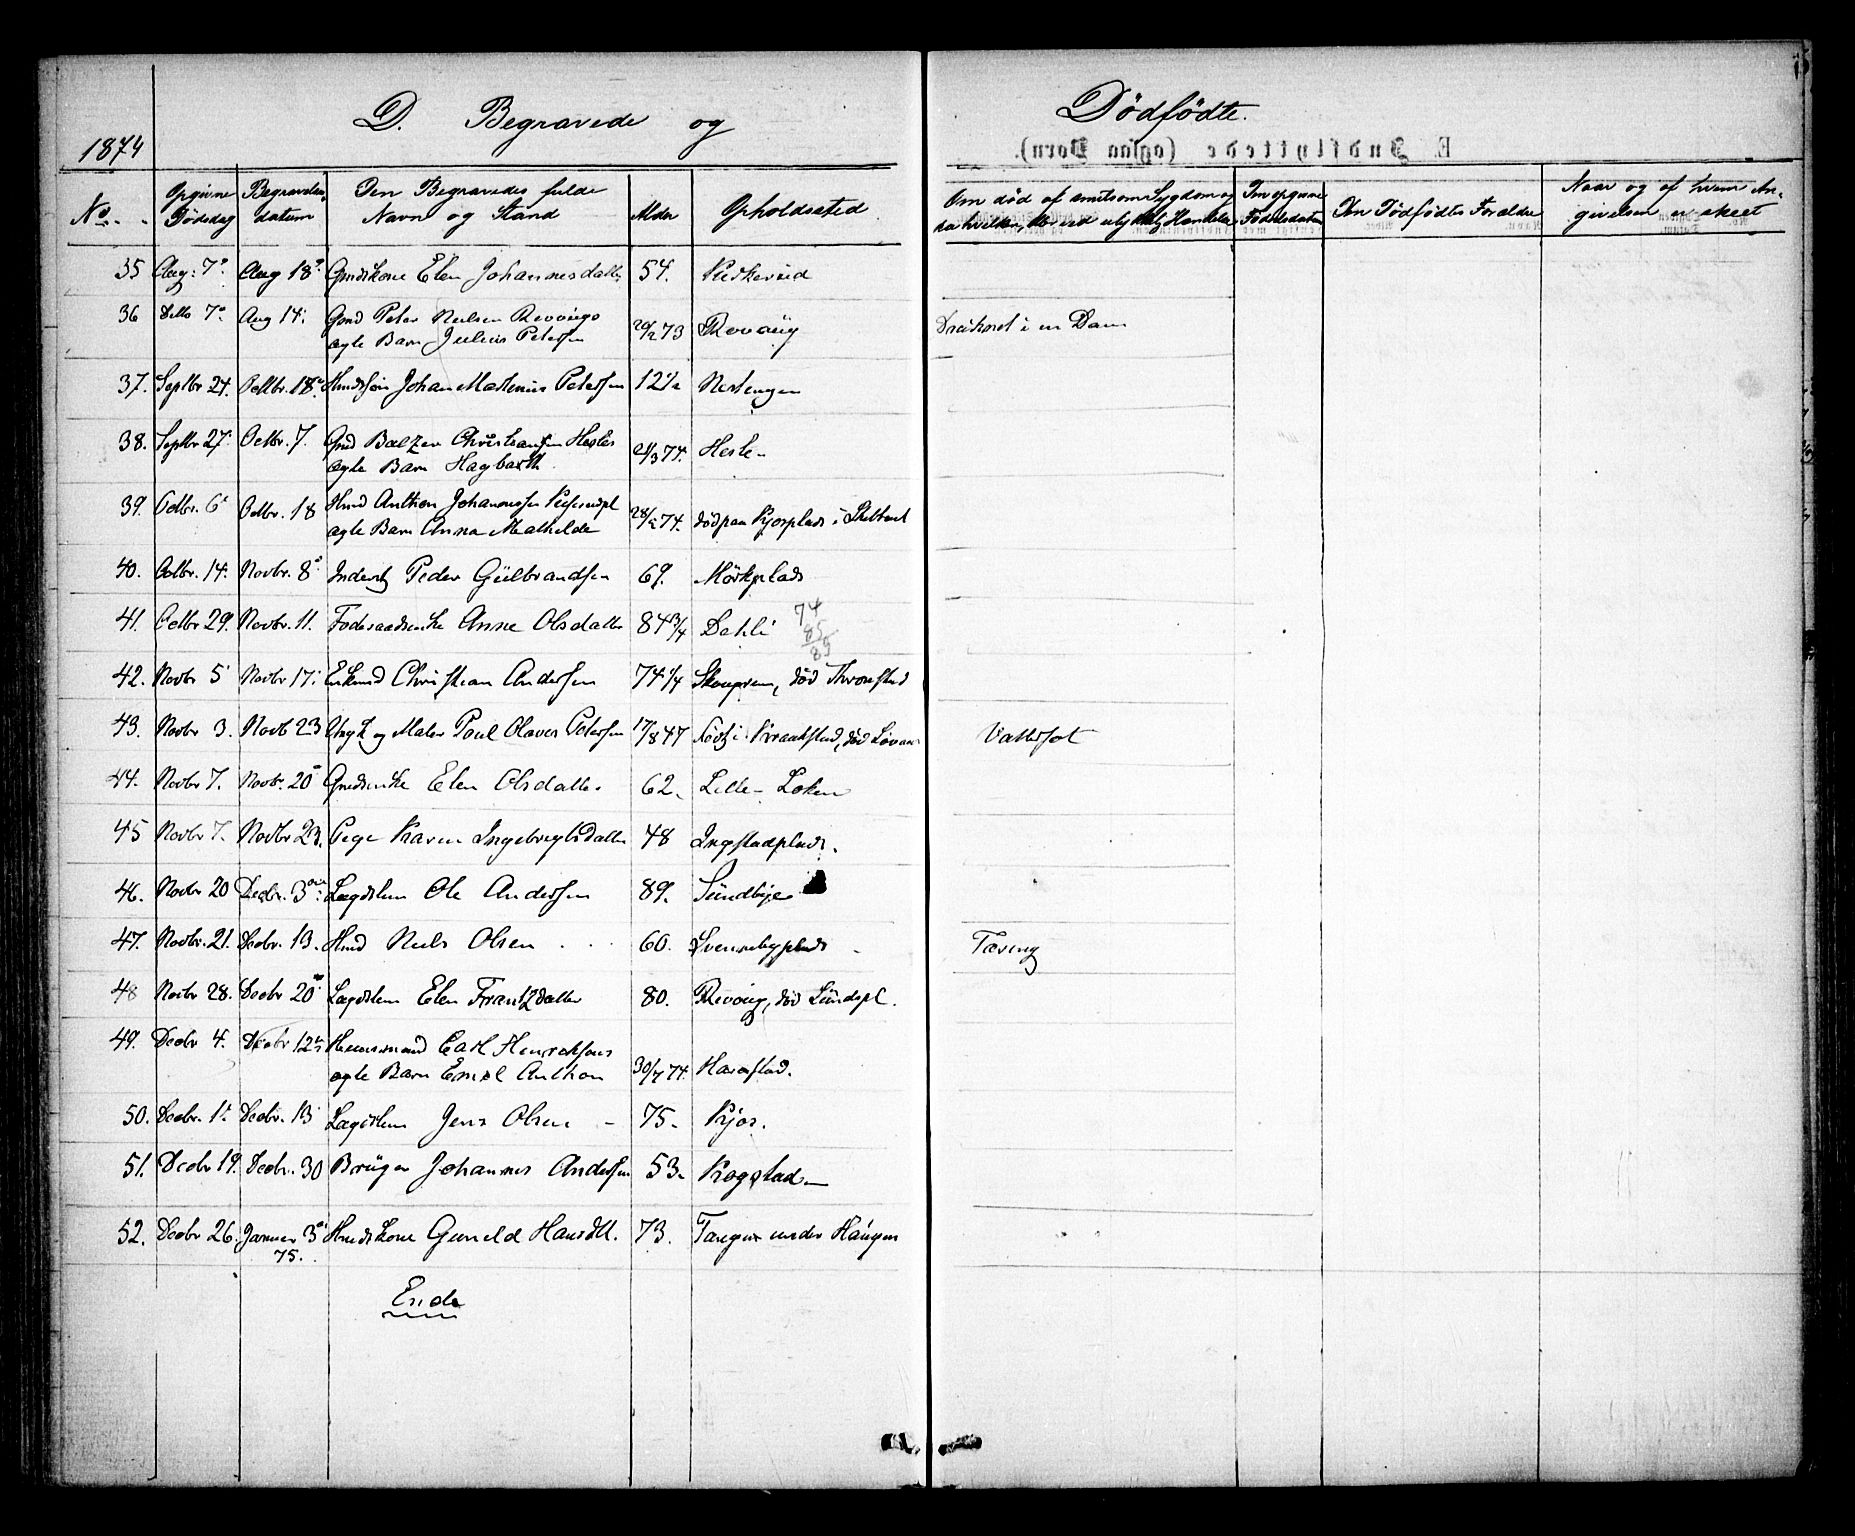 D. Begravede og Dødfødte.
1874
No. Opgivne Dødsdag Begravelsesdatum Den Begravedes fulde Navn og Stand Alder Opholdssted Om død af smitsom Sygdom og da hvilken, eller ved ulykkelig Hændelse Den opgivne Fødselsdatum Den Dødfødtes Forældre Naar og af hvem Angivelsen er skeet
E Indflyttede (ogsaa Børn).
35 Aug: 7de Aug 18de Gmdskone Elen Johannesdatter 54.
36 Ditto 7de Aug 14. Gmd Peter Nielsen Revougs 20/2 73 Revoug Druknet i en Dam
ægte Barn Julius Petersen
37. Septbr 24. Octbr. 18de Hmdssøn Johan Martinius Petersen 12 1/2 Nestengen
38. Septbr 27. Octbr. 7. Gmd Balzer Christiansen Hesles 21/3 74. Hesle
ægte Barn Hagbarth
39. Octbr. 6. Octbr. 18 Hmd Anthon Johannessen
ægte Barn Anna Mathilde 28/2 74. død paa Kjosplads i Skibtvet
40. Octbr. 14. Novbr. 8de Inderst Peder Gulbrandsen 69. Mörkplads
41. Octbr 29. Novbr. 11. Foderaadsenke Anne Olsdatter 84 3/4 Dahli 74
85
42. Novbr 5. Novbr 17. Enkemd Christian Andersen 74 1/4 Skougren, død Thronstad
43. Novbr 3. Novb 23 Ungk og Maler Poul Olaves Petersen 17/8 47 Født i Kraakstad, død Vattersot
44. Novbr 7. Novbr. 20de Gmdsenke Elen Olsdatter 62. Lille-Loken
45 Novbr 7. Novbr 23. Pige Karen Ingebregtsdatter 48 Ingstadplads.
46. Novbr 20 Decbr. 3die Lægdslem Ole Andersen 89. Sundbye
47. Novbr. 21. Decbr. 13. Hmd Niels Olsen 60. Svennebyplads Tæring
48 Novbr 28. Decbr 20de Lægdslem Elen Frantzdatter 80. Revoug, død Sundspl.
49. Decbr 4. Decbr 12te Huusmand Carl Henriksens
ægte Barn Emil Anthon 30/7 74. Harastad.
50. Decbr. 1. Decbr. 13 Lægdslem Jens Olsen 75. Kjos.
51. Decbr 19. Decbr. 30 Bruger Johannes Andersen 53. Kogstad
52. Decbr 26. Januar 3die Hmdskone Gunild Hansdtt. 73. Tangen under Haugen
75.
Ende